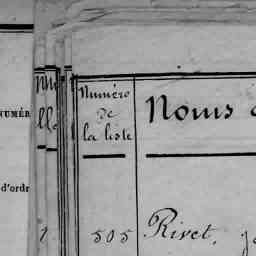 NUMÉR
d'ordr
Numéro
de
la liste
Noms
505 Rivet,